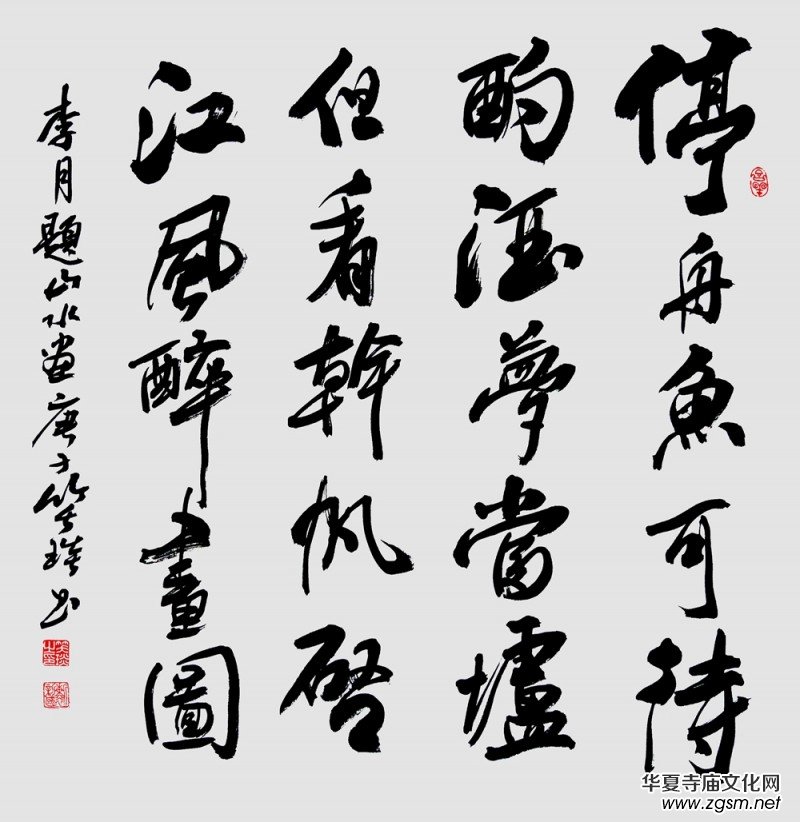 停舟魚可待
酌酒夢當壚
但看幹帆啓
江風醉畫圖
李月題山水畫庚子
书
华夏寺庙文化网
www.zgsm.net